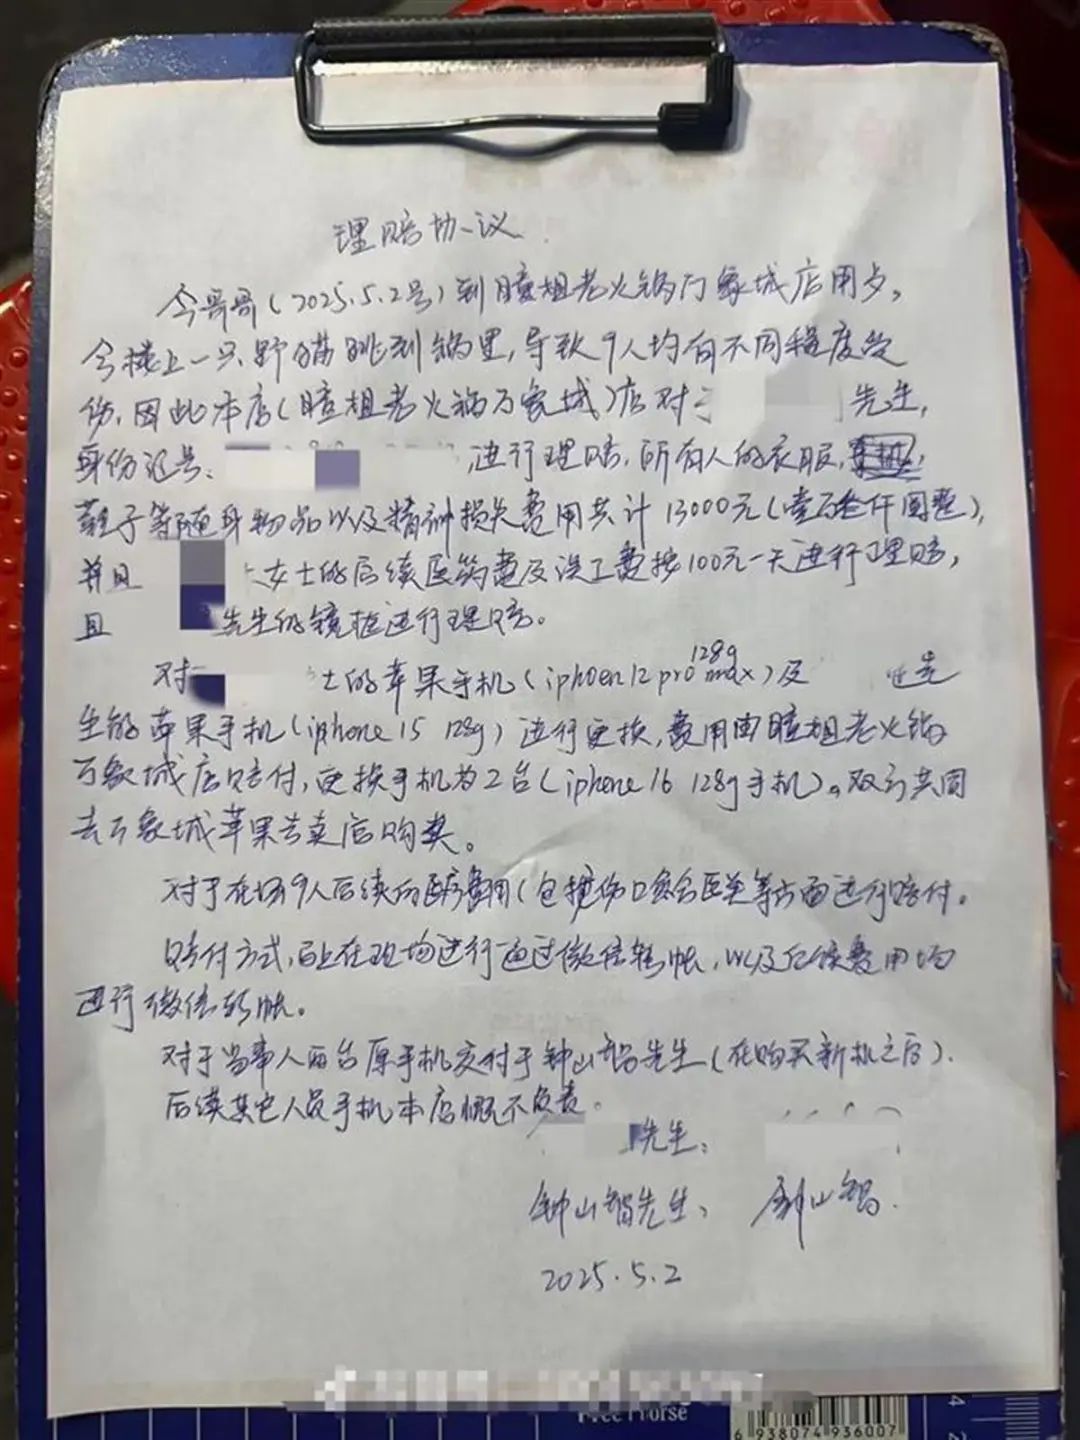 理赔协议
今哥哥(2025.5.2号)到瞳姐老火锅万象城店用夕。
今楼上一只野猫跳到锅里,导致9人均有不同程度受
伤,因此本店(瞳姐老火锅万象城)店对于 先生,
身份证号: 进行理赔,所有人的衣服,
鞋子等随身物品以及精神损失费用共计13000元(壹万叁仟圆整),
并且 女士的后续医药费及误工费按100元一天进行理赔,
且 先生的镜框进行理赔。
对 士的苹果手机(iphoen 12 pro max 128g)及 先
生的苹果手机(iphone 15 128g)进行更换,费用由瞳姐老火锅
万象城店赔付,更换手机为2台(iphone 16 128g手机)。双方共同
去万象城苹果专卖店购买。
对于在场9人后续的医疗费用(包括伤口愈合医美等方面进行赔付。
赔付方式,店在现场进行通过微信转帐,以及后续费用均
进行微信转帐。
对于当事人两台原手机交付于钟山锡先生(在购买新机之后).
后续其它人员手机本店概不负责。
先生:
钟山锡先生: 钟山锡.
2025.5.2
Free Horse
6 938074 936007
4
2